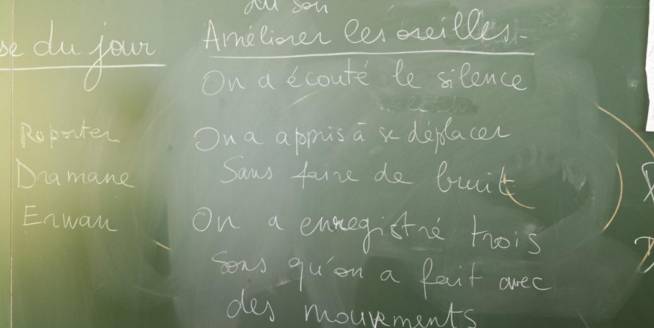 du son
se du jour
Améliorer les oreilles.
On a écouté le silence
Reporter
Dramane
Erwan
On a appris à se déplacer
Sans faire de bruit
On a enregistré trois
Sons qu'on a fait avec
des mouvements